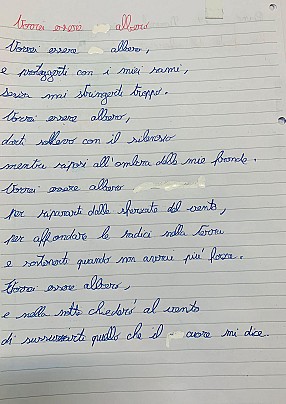 Vorrei essere albero
Vorrei essere albero,
e proteggerti con i miei rami,
senza mai stringerti troppo.
Vorrei essere albero,
darti sollievo con il silenzio
mentre riposi all'ombra delle mie fronde.
Vorrei essere albero
per ripararti dalle sferzate del vento,
per affondare le radici nella terra
e sostenerti quando non avrai più forza.
Vorrei essere albero,
e nella notte chiederò al vento
di sussurrarti quello che il cuore mi dice.